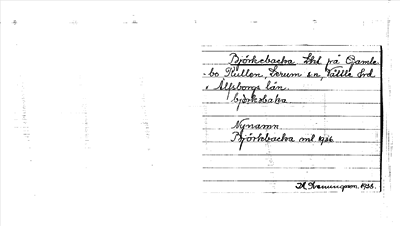 Björkebacka. Lht på Gamle-
bo Kullen, Lerum sn, Vättle hrd
, Älfsborgs län.
bjørkəbaka
Nynamn.
Björkebacka ml. 1936
1938.